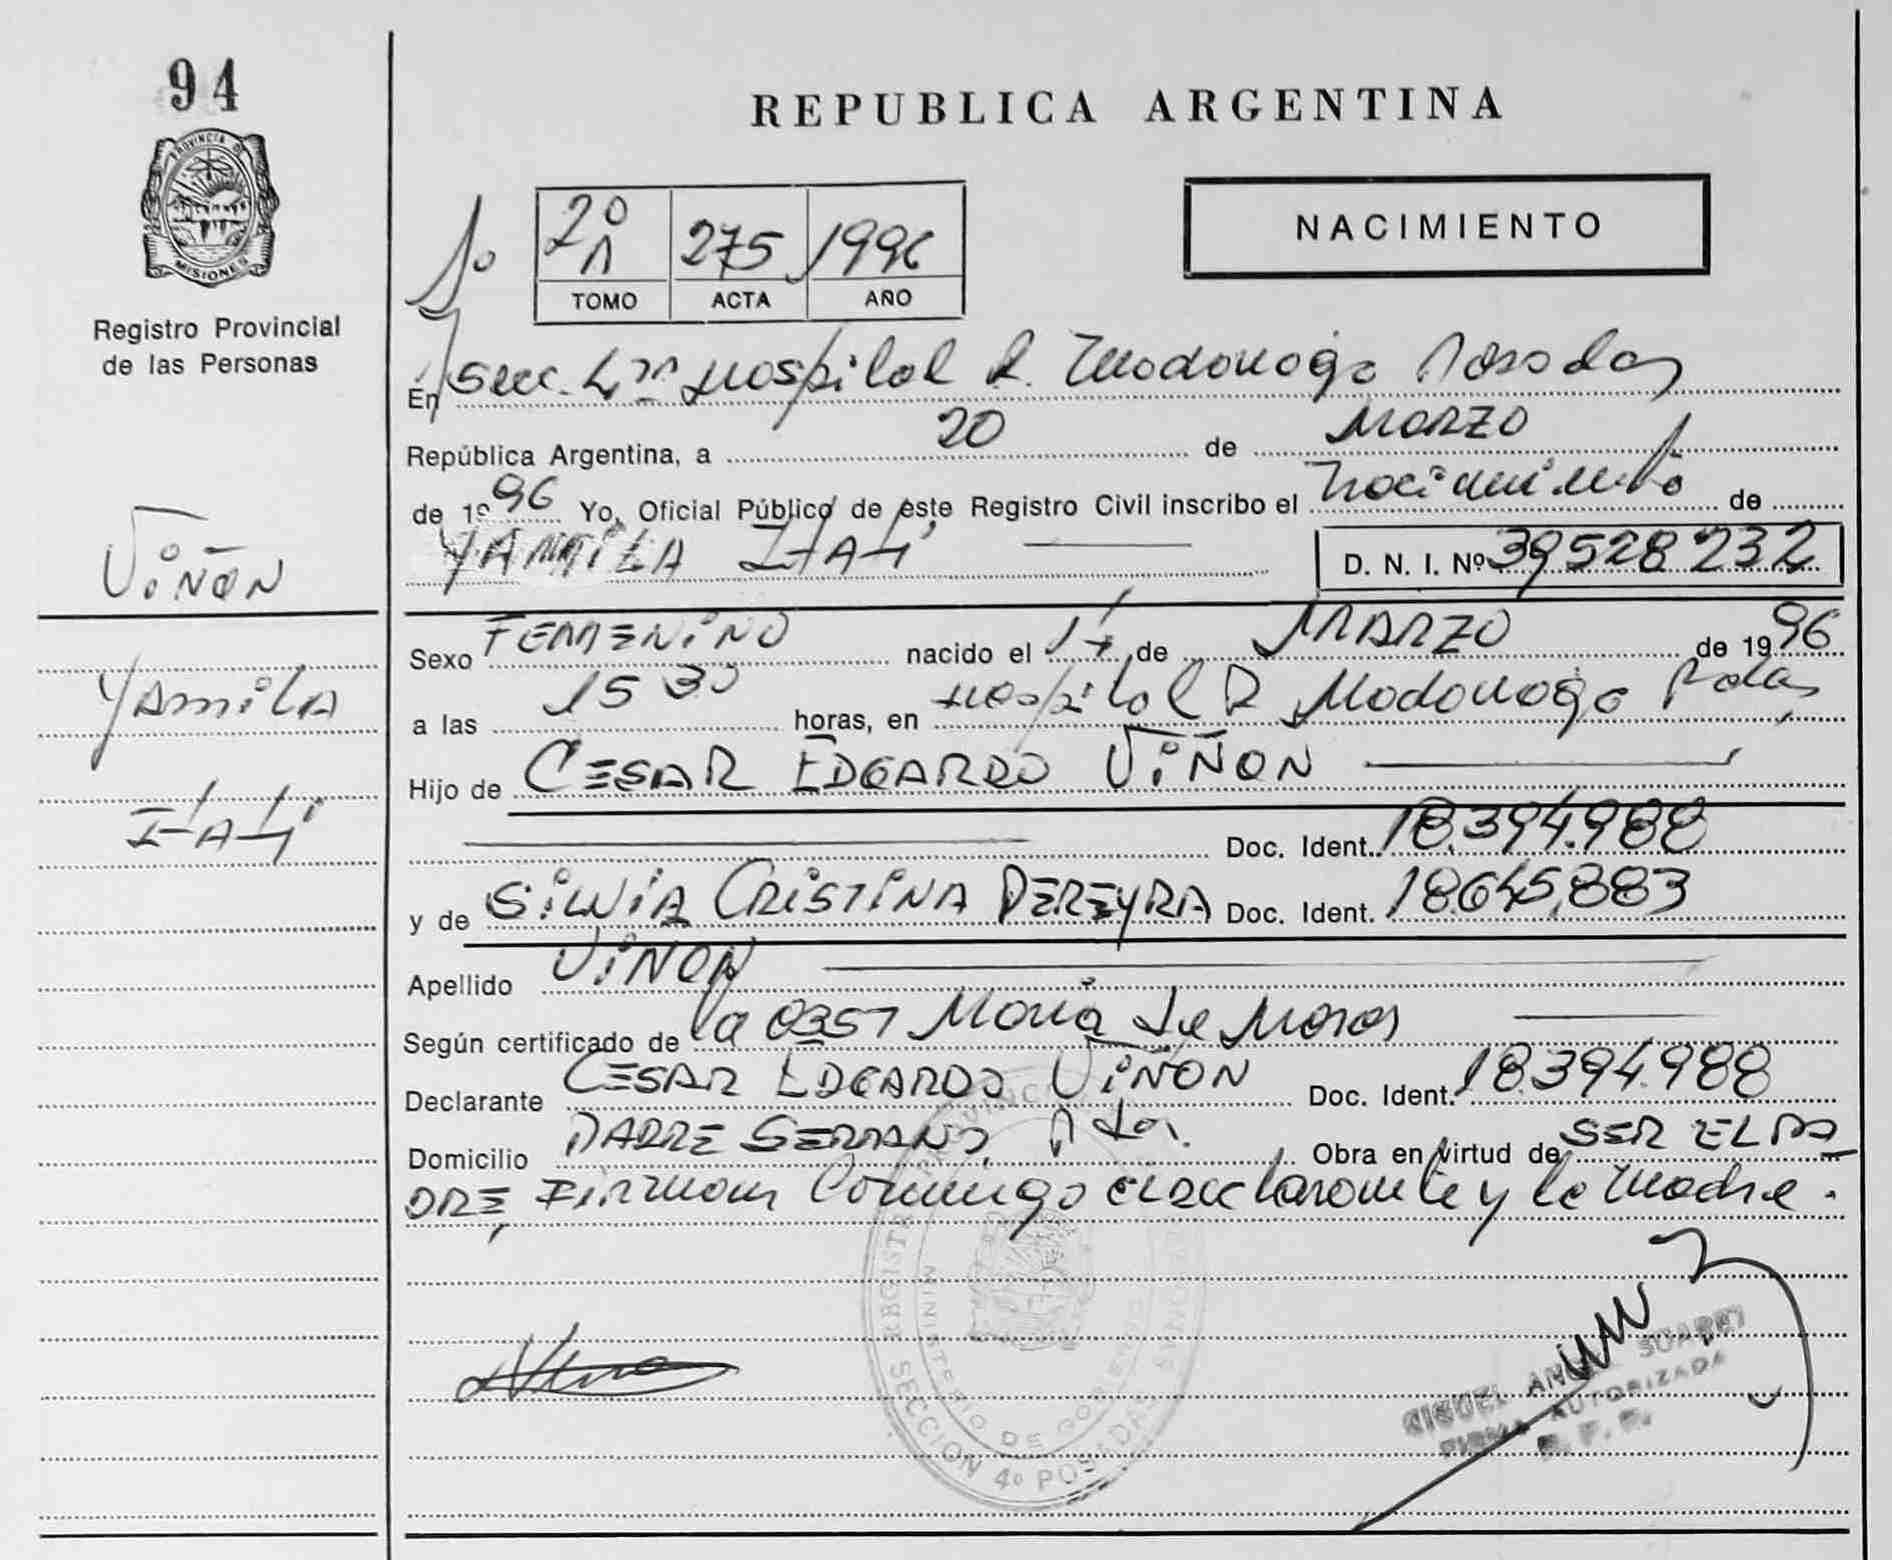 94
PROVINCIA DE
MISIONES
Registro Provincial
de las Personas
VIÑON
YAMILA
ITATÍ
REPUBLICA ARGENTINA
NACIMIENTO
2º 275 1996
TOMO ACTA AÑO
En Secc. 4ta Hospital R. Madariaga Posadas
República Argentina, a 20 de Marzo
de 1996 Yo, Oficial Público de este Registro Civil inscribo el Nacimiento de
YAMILA ITATÍ D. N. I. Nº 39528232
Sexo FEMENINO nacido el 17 de MARZO de 1996
a las 15 30 horas, en Hospital R Madariaga Pdas
Hijo de CESAR EDGARDO VIÑON
Doc. Ident. 18.394.988
y de SILVIA CRISTINA PEREYRA Doc. Ident. 18.645.883
Apellido VIÑON
Según certificado de la 0357 Maria
Declarante CESAR EDGARDO VIÑON Doc. Ident. 18.394.988
Domicilio PADRE SERRANO, Pdas. Obra en virtud de SER EL PA
DRE, Firman Conmigo el declarante y la Madre.
REGISTRO PROVINCIAL PERSONAS
MINISTERIO DE GOBIERNO
SECCION 4º POSADAS
MIGUEL ANGEL SUAREZ
FIRMA AUTORIZADA